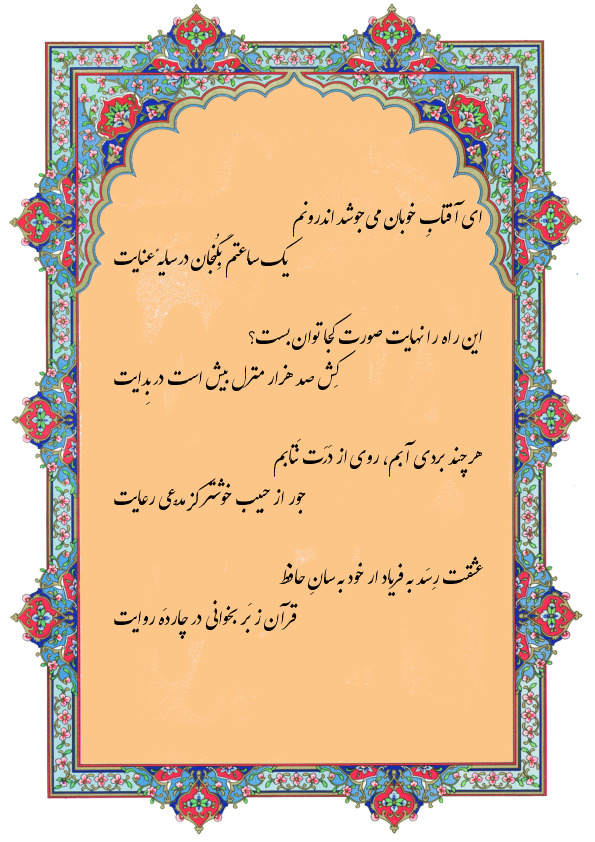 ای آفتابِ خوبان می‌جوشد اندرونم
یک ساعتم بِگُنجان در سایهٔ عنایت
این راه را نهایت صورت کجا توان بست؟
کِش صد هزار منزل بیش است در بِدایت
هر چند بردی آبم، روی از دَرَت نَتابم
جور از حبیب خوشتر کز مدعی رعایت
عشقت رِسَد به فریاد ار خود به سانِ حافظ
قرآن ز بَر بخوانی در چارده روایت